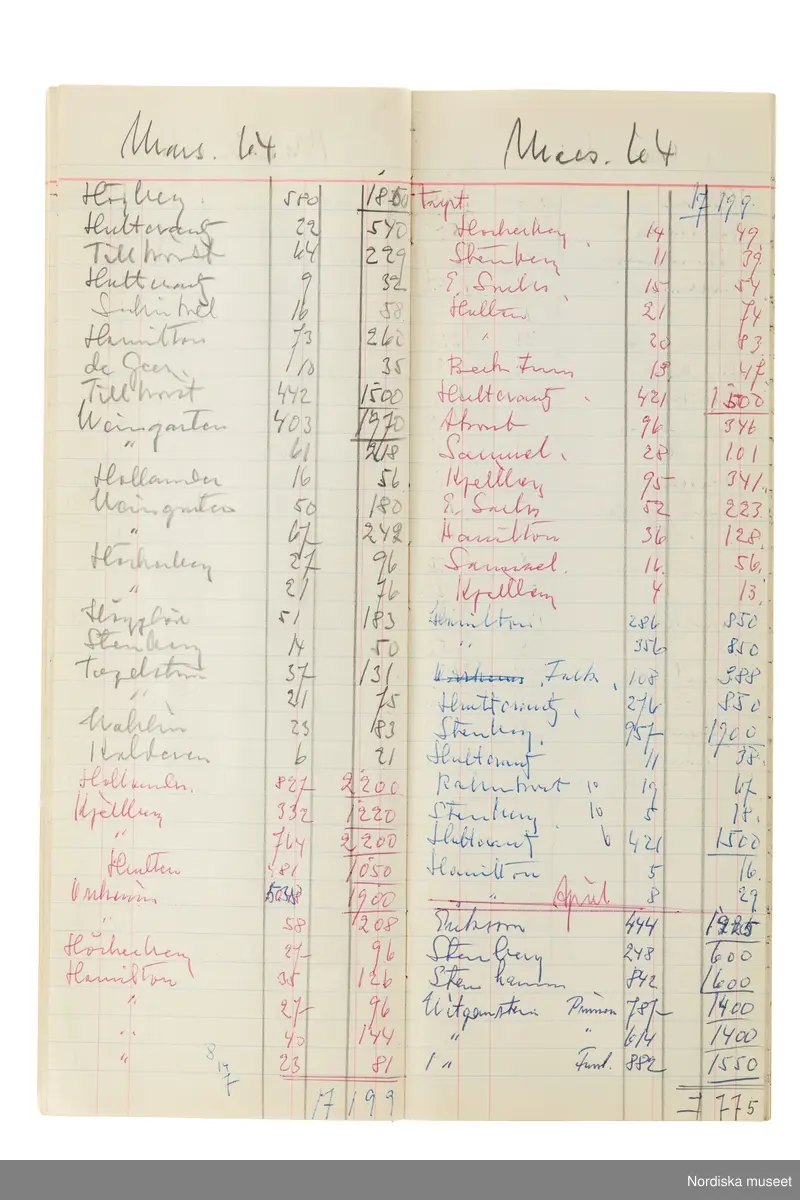 Mars. 64.
580 1850
Hultcrantz 22 540
Tillhorst 64 229
Hultcrantz 9 32
16 58
Hamilton 73 260
de Geer. 10 35
Tillhorst 442 1500
Weingarten 403 1970
" 61 218
Hollander 16 56
Weingarten 50 180
" 67 242
27 96
" 21 76
51 183
Stenberg 14 50
37 131
" 21 75
Wahlin 23 83
6 21
Hollander. 827 2200
Kjellberg 332 1220
" 764 2200
Hulten 481 1050
1900
" 58 208
27 96
Hamilton 35 126
" 27 96
" 40 144
" 23 81
17 199
Mars. 64
Tarpt. 17 199.
14 49.
Stenberg 11 39.
E. Sachs 15 54
Hulten 21 74
" 20 83
13 47.
Hultcrantz 421 1500
96 346
Samuel. 28 101
Kjellberg 95 341.
E. Sachs 52 223.
Hamilton 36 128.
Samuel. 16 56.
Kjellberg 4 13.
Hamilton 286 850
" 356 850
Falk 108 388
Hultcrantz 276 850
Stenberg. 957 1900
Hultcrantz 11 38.
10 19 67
Stenberg 10 5 18.
Hultcrantz 6 421 1500
Hamilton 5 16.
" April 8 29
Eriksson 444
Stenberg 248 600
Stenhamm 842 1600
787 1400
" " 614 1400
" 882 1550
7 775
Nordiska museet